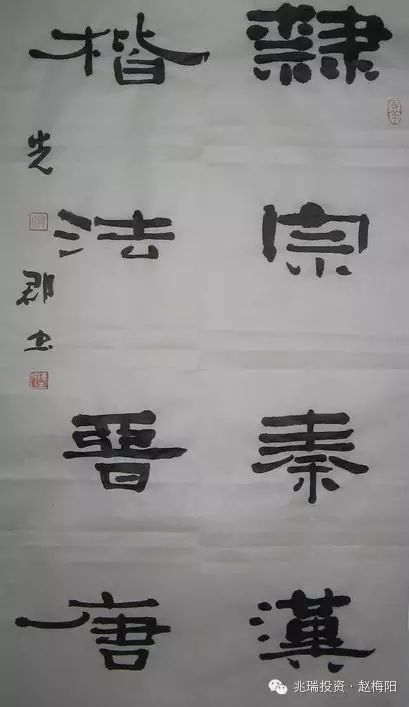 隸宗秦漢
楷法晉唐
郡书
兆瑞投资·赵梅阳